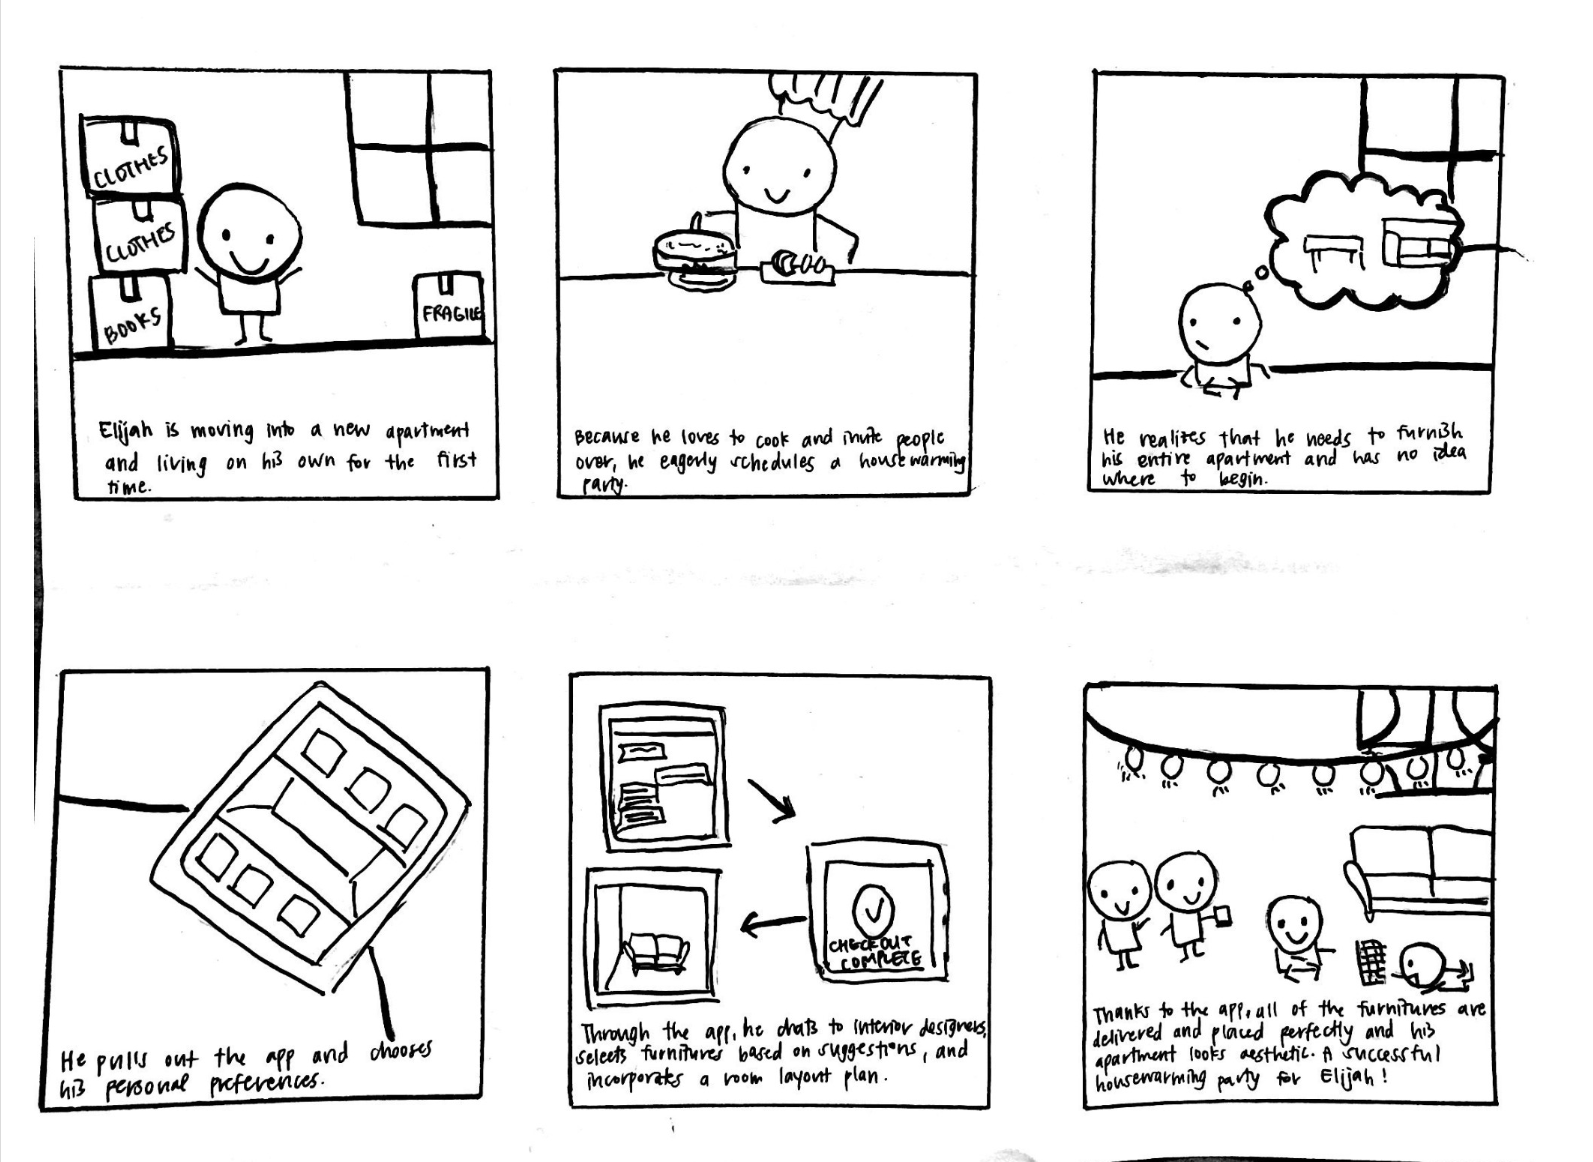 CLOTHES
CLOTHES
BOOKS
FRAGILE
Elijah is moving into a new apartment
and living on his own for the first
time.
Because he loves to cook and invite people
over, he eagerly schedules a housewarming
party.
He realizes that he needs to furnish
his entire apartment and has no idea
where to begin.
He pulls out the app and chooses
his personal preferences.
CHECKOUT
COMPLETE
Through the app, he chats to interior designers,
selects furnitures based on suggestions, and
incorporates a room layout plan.
Thanks to the app, all of the furnitures are
delivered and placed perfectly and his
apartment looks aesthetic. A successful
housewarming party for Elijah!